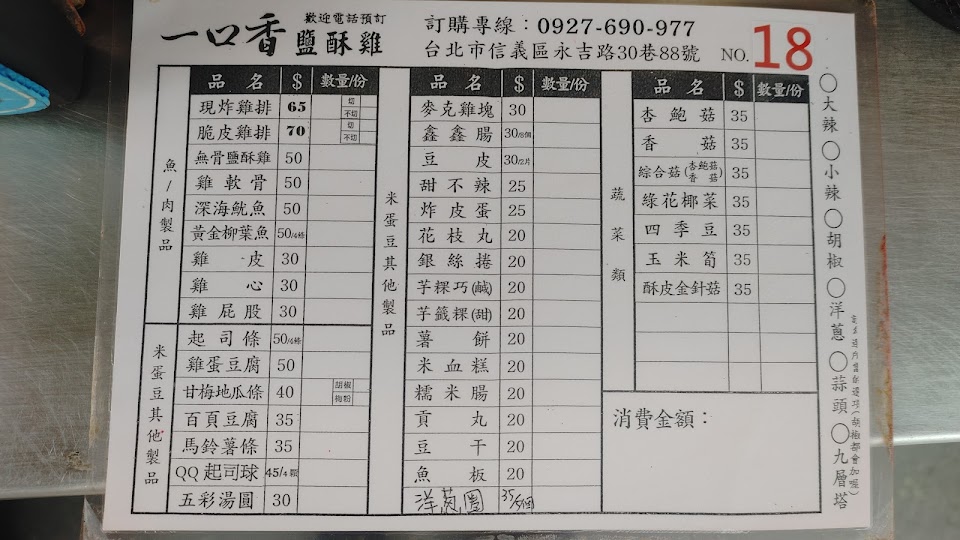 一口香鹽酥雞
歡迎電話預訂
訂購專線：0927-690-977
台北市信義區永吉路30巷88號
NO. 18
魚/肉製品
品名 $ 數量/份
現炸雞排 65 切 不切
脆皮雞排 70 切 不切
無骨鹽酥雞 50
雞軟骨 50
深海魷魚 50
黃金柳葉魚 50/4條
雞皮 30
雞心 30
雞屁股 30
米蛋豆其他製品
起司條 50/4條
雞蛋豆腐 50
甘梅地瓜條 40 胡椒 梅粉
百頁豆腐 35
馬鈴薯條 35
QQ起司球 45/4顆
五彩湯圓 30
米蛋豆其他製品
品名 $ 數量/份
麥克雞塊 30
鑫鑫腸 30/8個
豆皮 30/2片
甜不辣 25
炸皮蛋 25
花枝丸 20
銀絲捲 20
芋粿巧(鹹) 20
芋籤粿(甜) 20
薯餅 20
米血糕 20
糯米腸 20
貢丸 20
豆干 20
魚板 20
洋蔥圈 35/5個
蔬菜類
品名 $ 數量/份
杏鮑菇 35
香菇 35
綜合菇(杏鮑菇香菇) 35
綠花椰菜 35
四季豆 35
玉米筍 35
酥皮金針菇 35
消費金額：
○大辣○小辣○胡椒○洋蔥○蒜頭○九層塔
(胡椒都會加喔)